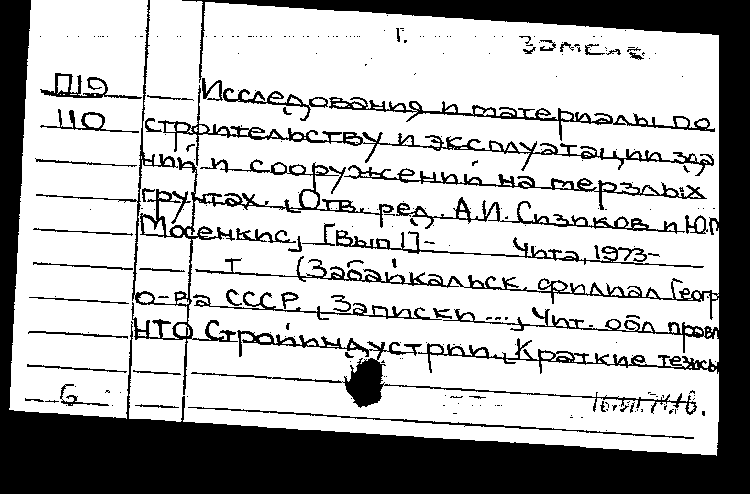 Г.
П19
110
Исследования и материалы по
строительству и эксплуатации зда
ний и сооружений на мерзлых
грунтах. [Отв. ред. А.И. Сизиков и Ю.Г
Мосенкис], [Вып 1]- Чита, 1973-
т (Забайкальск. филиал Геогр
о-ва СССР. [Записки ...], Чит. обл правл
НТО Стройиндустрии. [Краткие тезисы
6